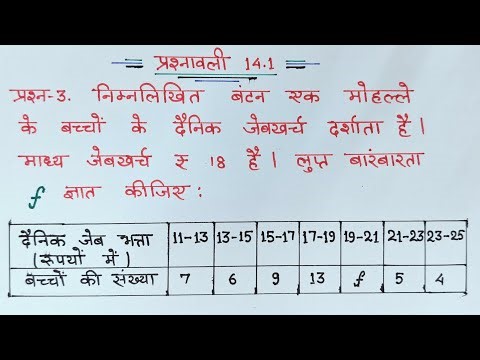 प्रश्नावली 14.1
प्रश्न-3. निम्नलिखित बंटन एक मोहल्ले
के बच्चों के दैनिक जेबखर्च दर्शाता है।
माध्य जेबखर्च रु 18 है। लुप्त बारंबारता
f ज्ञात कीजिए :
दैनिक जेब भत्ता 11-13 13-15 15-17 17-19 19-21 21-23 23-25
(रुपयों में)
बच्चों की संख्या 7 6 9 13 f 5 4